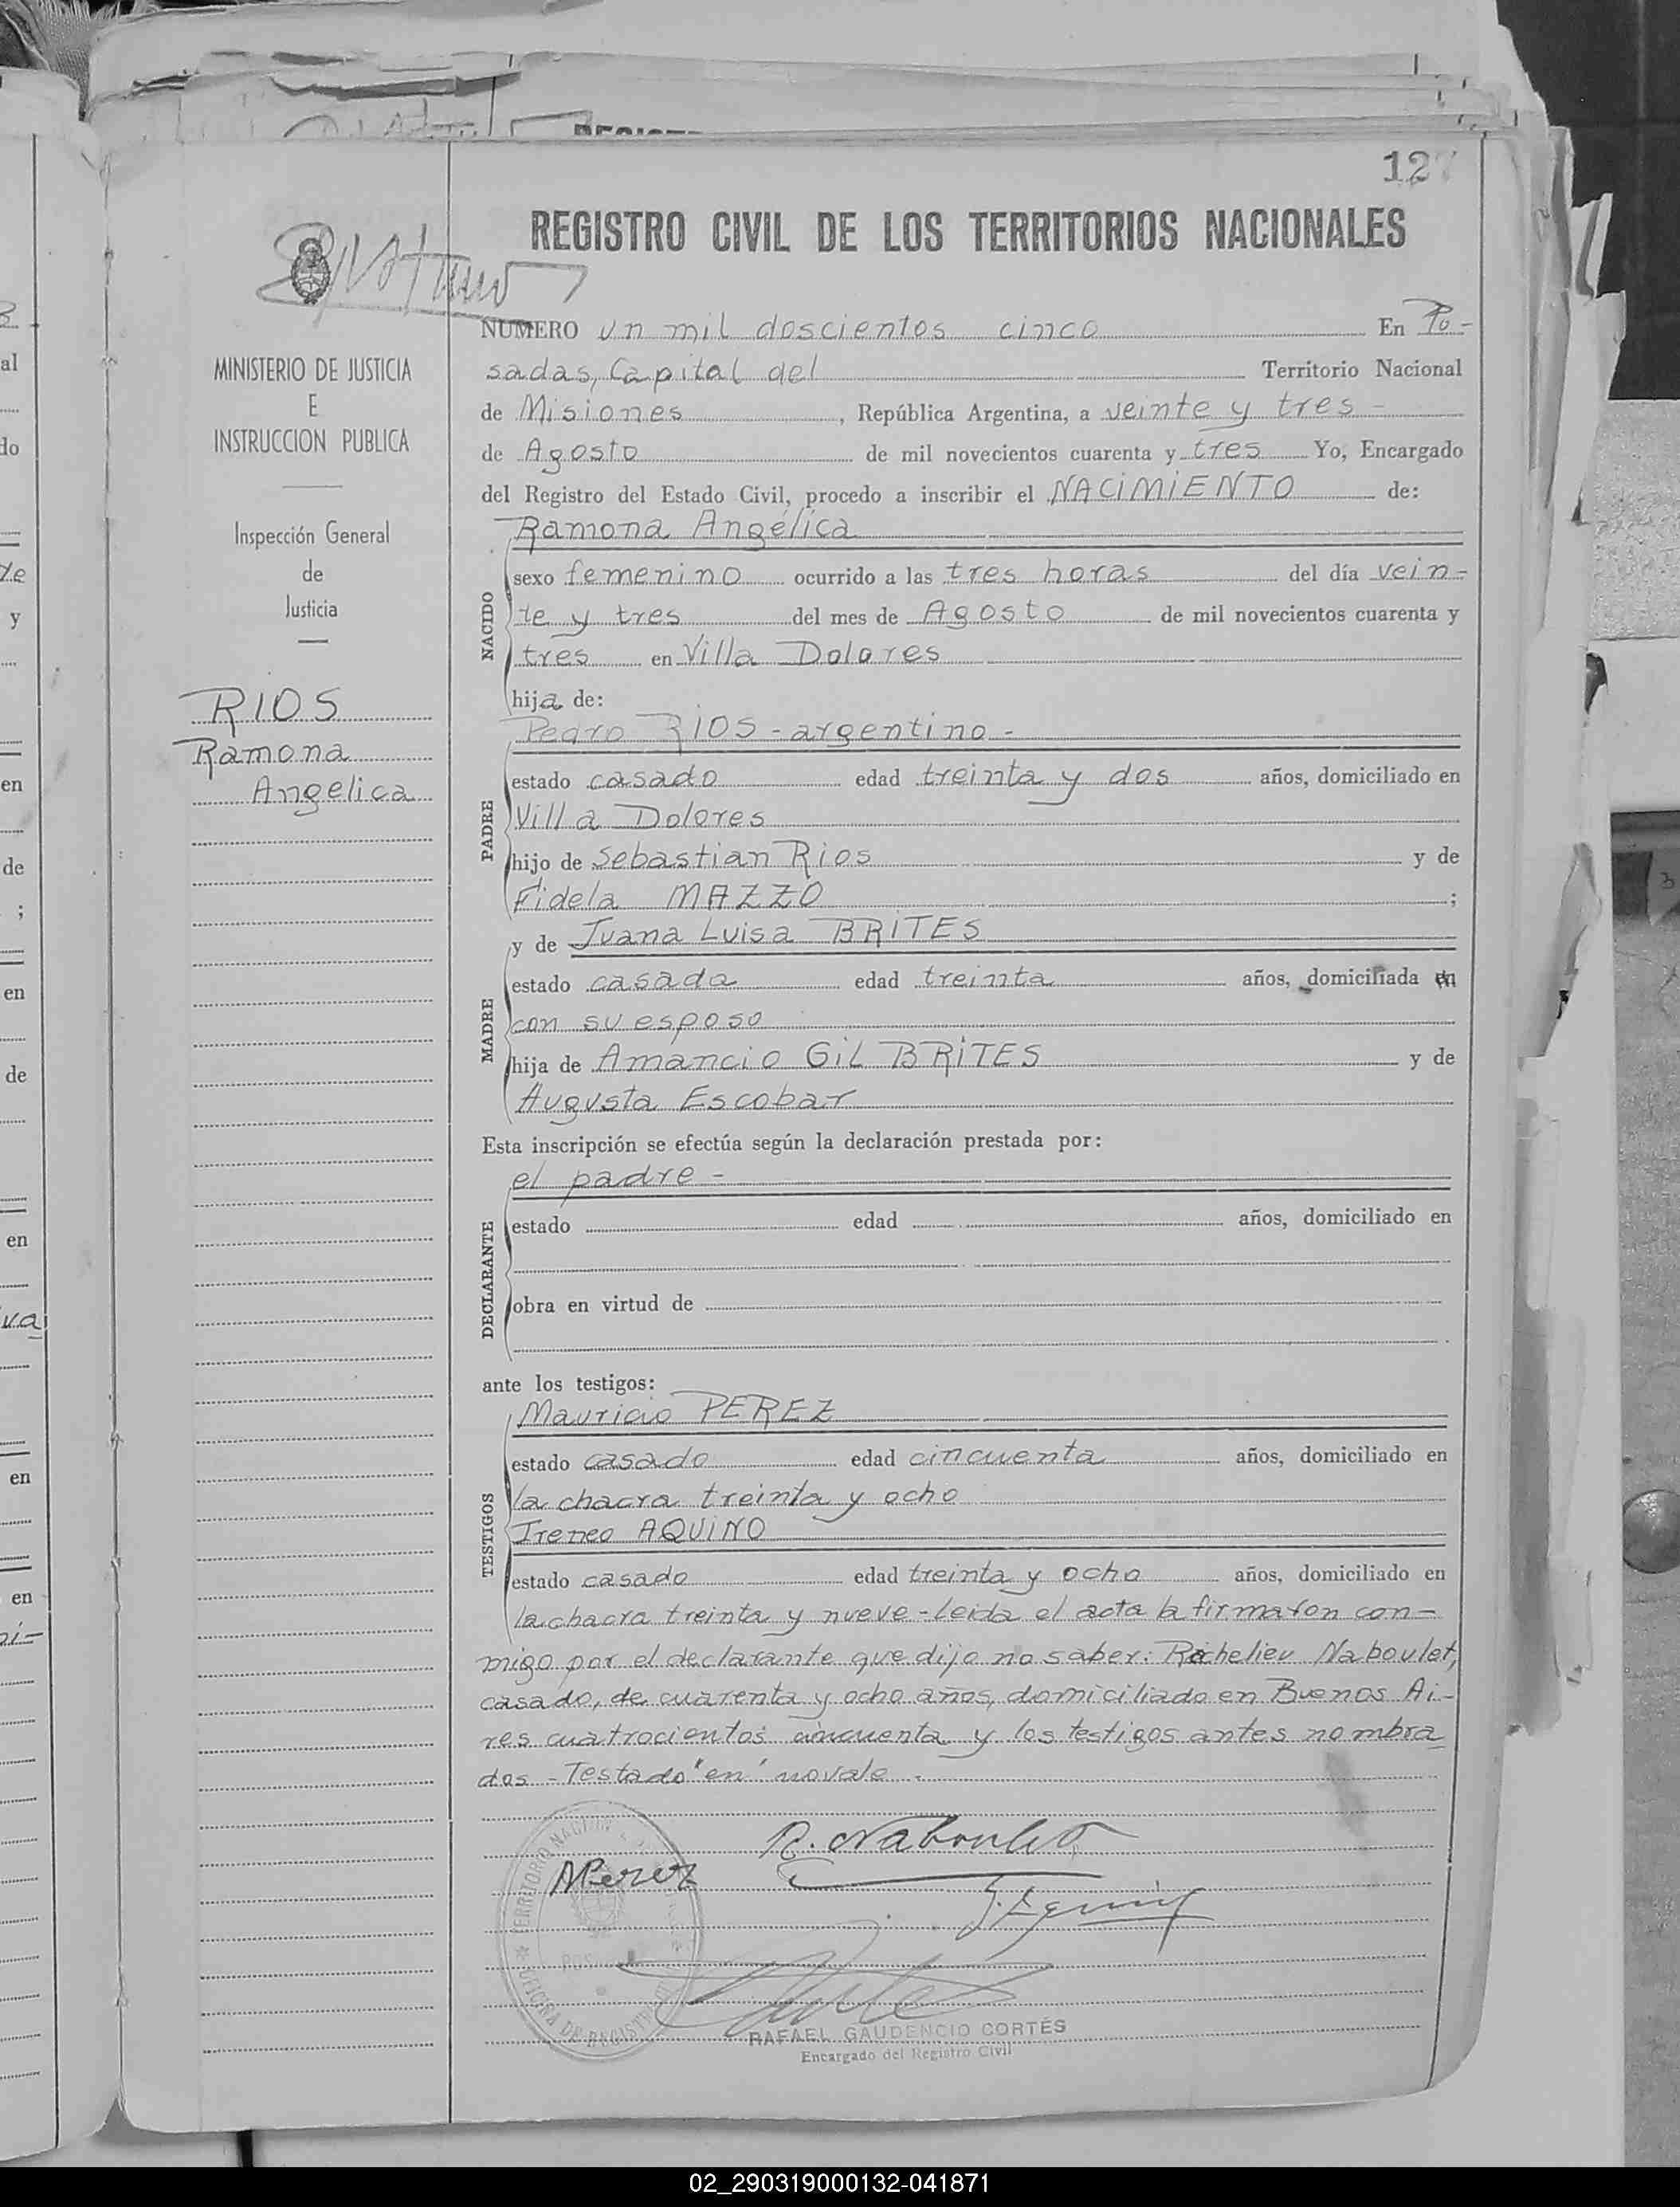 127
REGISTRO CIVIL DE LOS TERRITORIOS NACIONALES
MINISTERIO DE JUSTICIA
E
INSTRUCCION PUBLICA
Inspección General
de
Justicia
RIOS
Ramona
Angelica
NUMERO un mil doscientos cinco En Po-
sadas, Capital del Territorio Nacional
de Misiones, República Argentina, a veinte y tres -
de Agosto de mil novecientos cuarenta y tres Yo, Encargado
del Registro del Estado Civil, procedo a inscribir el NACIMIENTO de:
Ramona Angélica
NACIDO
sexo femenino ocurrido a las tres horas del día vein-
te y tres del mes de Agosto de mil novecientos cuarenta y
tres en Villa Dolores
hija de:
Pedro RIOS - argentino -
PADRE
estado casado edad treinta y dos años, domiciliado en
Villa Dolores
hijo de Sebastian Rios y de
Fidela MAZZO ;
y de Juana Luisa BRITES
MADRE
estado casada edad treinta años, domiciliada en
con su esposo
hija de Amancio Gil BRITES y de
Augusta Escobar
Esta inscripción se efectúa según la declaración prestada por:
el padre -
DECLARANTE
estado edad años, domiciliado en
obra en virtud de
ante los testigos:
Mauricio PEREZ
TESTIGOS
estado casado edad cincuenta años, domiciliado en
la chacra treinta y ocho
Ireneo AQUINO
estado casado edad treinta y ocho años, domiciliado en
la chacra treinta y nueve - leida el acta la firmaron con-
migo por el declarante que dijo no saber: Richelieu Naboulet,
casado, de cuarenta y ocho años, domiciliado en Buenos Ai-
res cuatrocientos cincuenta y los testigos antes nombra
dos - Testado "en" no vale -
R. Naboulet
MPerez
TERRITORIO NACIONAL
OFICINA DE REGISTRO
RAFAEL GAUDENCIO CORTÉS
Encargado del Registro Civil
02_290319000132-041871